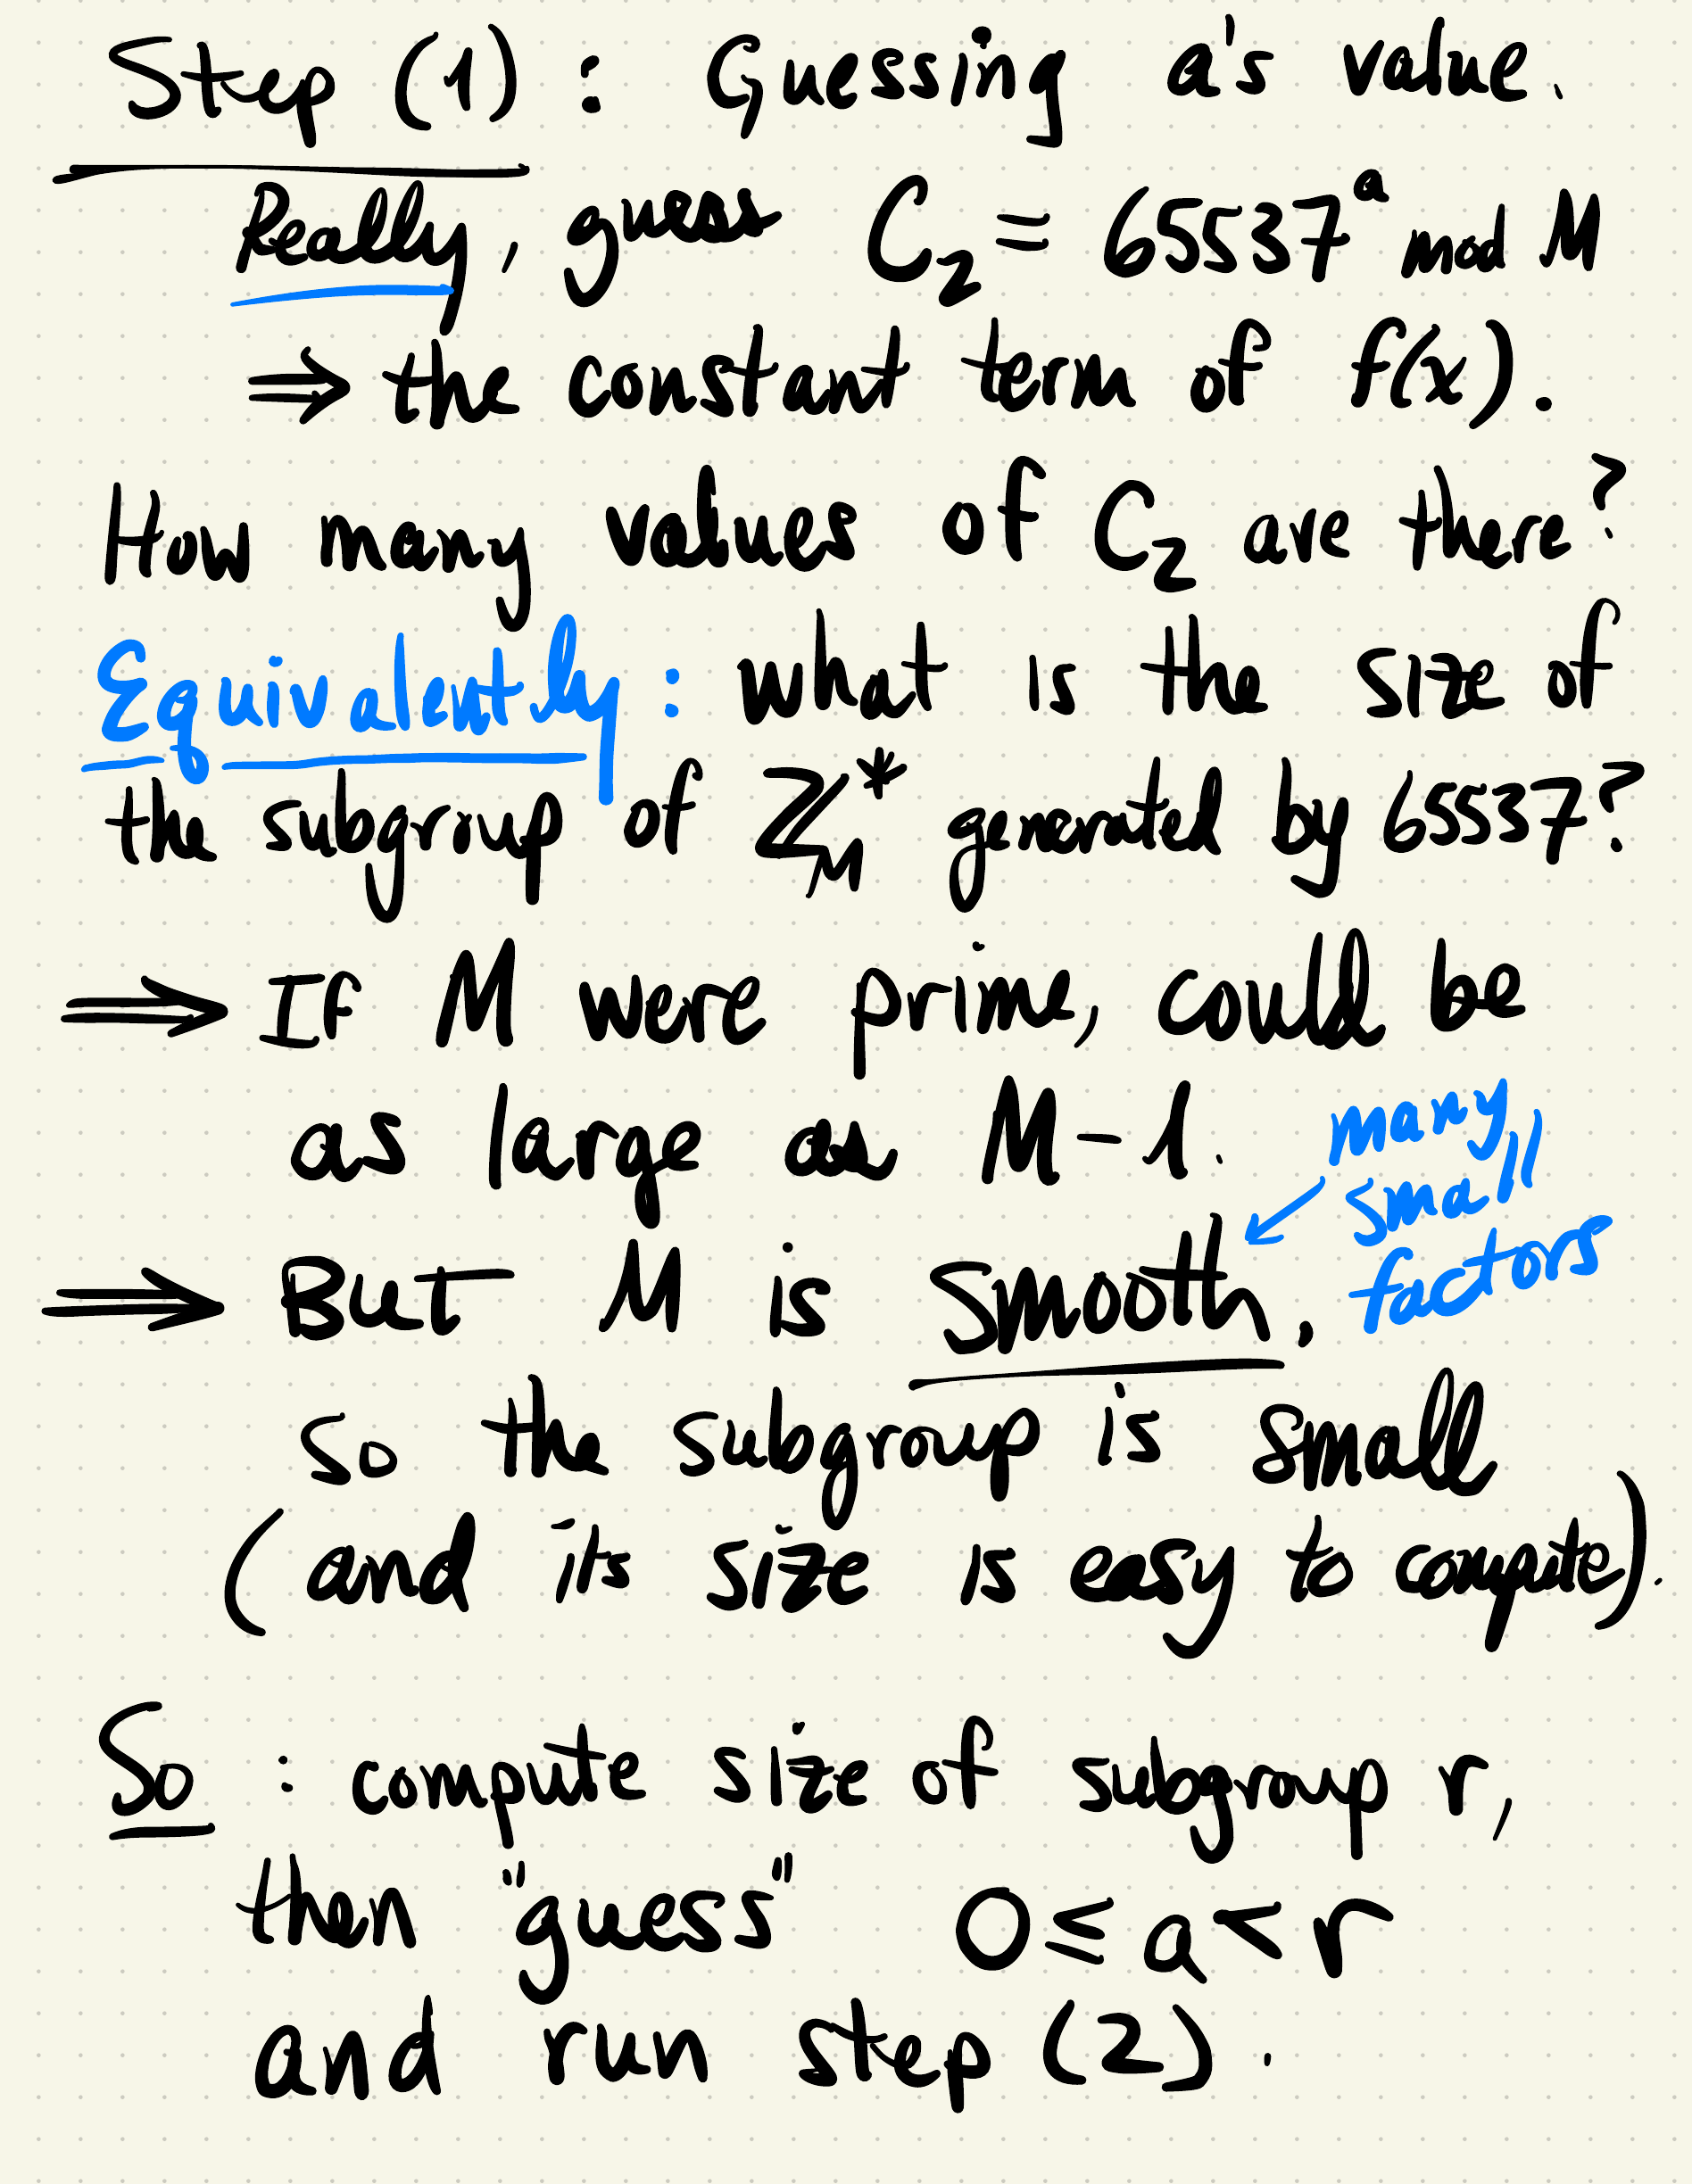 Step (1) : Guessing a's value.
Really, guess C₂ = 65537ᵃ mod M
⇒ the constant term of f(x).
How many values of C₂ are there?
Equivalently: what is the size of
the subgroup of ℤ_M* generated by 65537?
⇒ If M were prime, could be
as large as M-1.
many
small
factors
⇒ But M is smooth,
so the subgroup is small
(and its size is easy to compute).
So : compute size of subgroup r,
then "guess" 0 ≤ a < r
and run step (2).